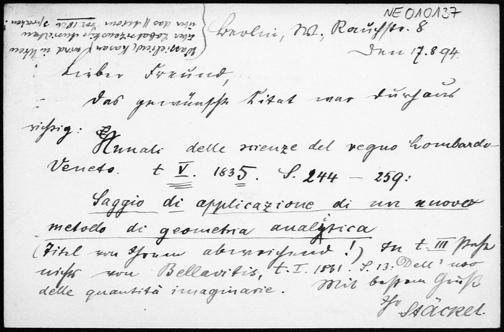 NE010137
Berlin, W, Rauchstr. 8
den 17.8.94.
Lieber Freund,
das gewünschte Citat war durchaus
richtig:
Annali delle scienze del regno Lombardo-
Veneto. t V. 1835. S. 244 – 259:
Saggio di applicazione di un nuovo
metodo di geometria analitica
(Titel von Ihrem abweichend!) In t. III steht
nichts von Bellavitis, t. I. 1831. S. 13. Dell' uso
delle quantità imaginarie. Mit bestem Gruß
Ihr
Stäckel